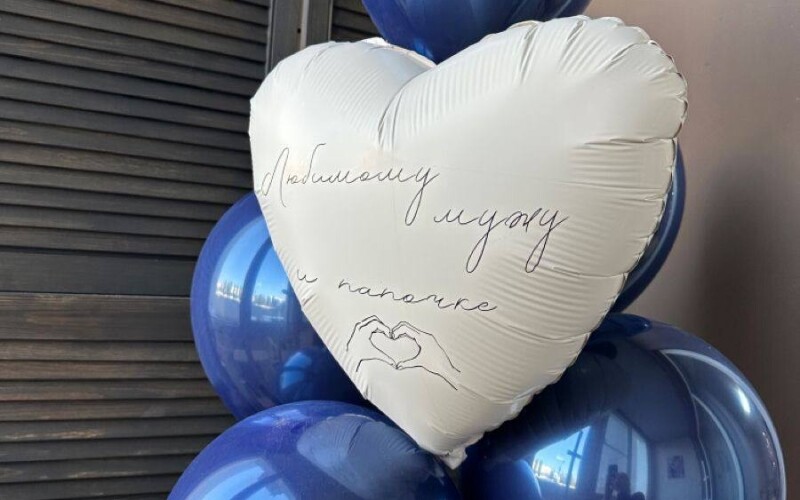 Любимому
мужу
и папочке